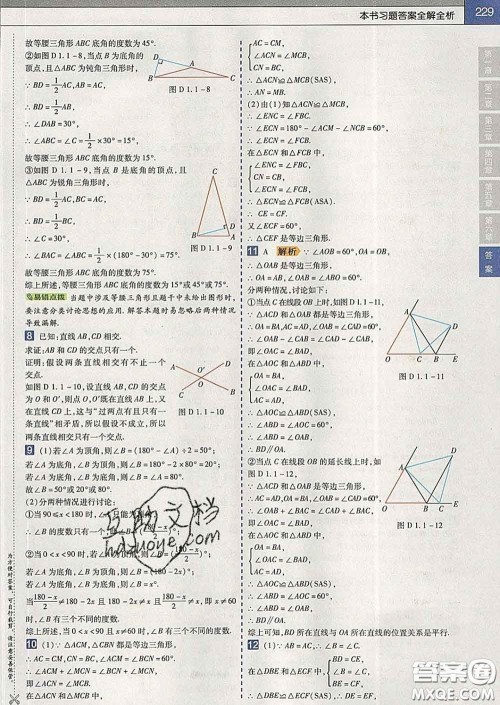 本书习题答案全解全析 229
故等腰三角形 ABC 底角的度数为 45°.
②如图 D1.1-8,当点 B 为底角的
顶点,且△ABC 为钝角三角形时,
∵ BD=1/2AC,AB=AC,
∴ BD=1/2AB,
∴ ∠DAB=30°,
∴ ∠ABC=∠C=1/2×30°=15°.
图 D1.1-8
故等腰三角形 ABC 底角的度数为 15°.
③如图 D1.1-9,当点 B 是底角的顶点,且
△ABC 为锐角三角形时,
∵ BD=1/2AC,AB=AC,
∴ BD=1/2AB,
∴ ∠A=30°,
∴ ∠ABC=∠C=1/2×(180°-30°)=75°.
图 D1.1-9
故等腰三角形 ABC 底角的度数为 75°.
综上所述,等腰三角形 ABC 底角的度数为 45°或 15°或 75°.
易错点拨 当题中涉及等腰三角形且题干中未给出图形时,
要注意分类讨论思想的应用.解答本题时易忽略后两种情况
导致漏解.
8 已知:直线 AB,CD 相交.
求证:AB 和 CD 的交点只有一个.
证明:假设两条直线相交有不止一个
交点.
如图 D1.1-10,设直线 AB,CD 的交点
为 O 和 O′,则点 O,O′既在直线 AB 上,又
在直线 CD 上,这与“过两点有且只有一
条直线”相矛盾,所以假设不成立,所以
两条直线相交只有一个交点.
图 D1.1-10
9 (1)若∠A 为顶角,则∠B=(180°-∠A)÷2=50°;
若∠A 为底角,∠B 为顶角,则∠B=180°-2×80°=20°;
若∠A 为底角,∠B 为底角,则∠B=80°.
故∠B=50°或 20°或 80°.
(2)分两种情况进行讨论:
①当 90≤x<180 时,∠A 只能为顶角,
∴ ∠B 的度数只有一个.
②当 0<x<90 时,若∠A 为顶角,则∠B=(180-x/2)°;
若∠A 为底角,∠B 为顶角,则∠B=(180-2x)°;
若∠A 为底角,∠B 为底角,则∠B=x°.
当180-x/2≠180-2x 且 180-2x≠x 且180-x/2≠x,即 x≠60 时,
∠B 有三个不同的度数.
综上所述,当 0<x<90 且 x≠60 时,∠B 有三个不同的度数.
10 (1)∵ △ACM,△CBN 都是等边三角形,
∴ AC=CM,CN=BC,∠ACM=∠BCN=60°,
∴ ∠ACM+∠MCN=∠BCN+∠MCN,
∴ ∠ACN=∠MCB.
在△ACN 和△MCB 中,
AC=CM,
∠ACN=∠MCB,
CN=BC,
∴ △ACN≌△MCB(SAS),
∴ AN=MB.
(2)由(1)知△ACN≌△MCB,
∴ ∠ENC=∠FBC.
∵ ∠ECN=180°-∠ACM-∠NCB=60°,
∴ ∠ECN=∠FCB.
在△ECN 和△FCB 中,
∠ENC=∠FBC,
CN=CB,
∠ECN=∠FCB,
∴ △ECN≌△FCB(ASA),
∴ CE=CF.
∵ ∠ECF=60°,
∴ △CEF 是等边三角形.
11 A 解析 ∵ ∠AOB=60°,OA=OB,
∴ △OAB 是等边三角形,
∴ OA=AB,∠OAB=∠ABO=60°.
分两种情况,讨论如下:
①当点 C 在线段 OB 上时,如图 D1.1-11.
∵ △ACD 是等边三角形,
∴ AC=AD,∠CAD=60°,
∴ ∠OAC=∠BAD.
在△AOC 和△ABD 中,
OA=BA,
∠OAC=∠BAD,
AC=AD,
∴ △AOC≌△ABD(SAS),
∴ ∠ABD=∠AOC=60°,
∴ ∠ABD=∠OAB,
∴ BD∥OA.
图 D1.1-11
②当点 C 在线段 OB 的延长线上时,如图 D1.1-12.
∵ △ACD 是等边三角形,
∴ AC=AD,∠CAD=60°,
∴ ∠OAC=∠BAD.
在△AOC 和△ABD 中,
OA=BA,
∠OAC=∠BAD,
AC=AD,
∴ △AOC≌△ABD(SAS),
∴ ∠ABD=∠AOC=60°,
∴ ∠ABD=∠OAB,
∴ BD∥OA.
图 D1.1-12
综上可知,BD 所在直线与 OA 所在直线的位置关系是平行.
12 (1)∵ AC=BC,
∴ ∠ABC=∠BAC=60°,
第一章
第二章
第三章
第四章
第五章
第六章
答案
为方便对答案,可自行裁剪,请注意妥善保管.
互助文档
hdzuoye.com
答案圈
MXQE.COM